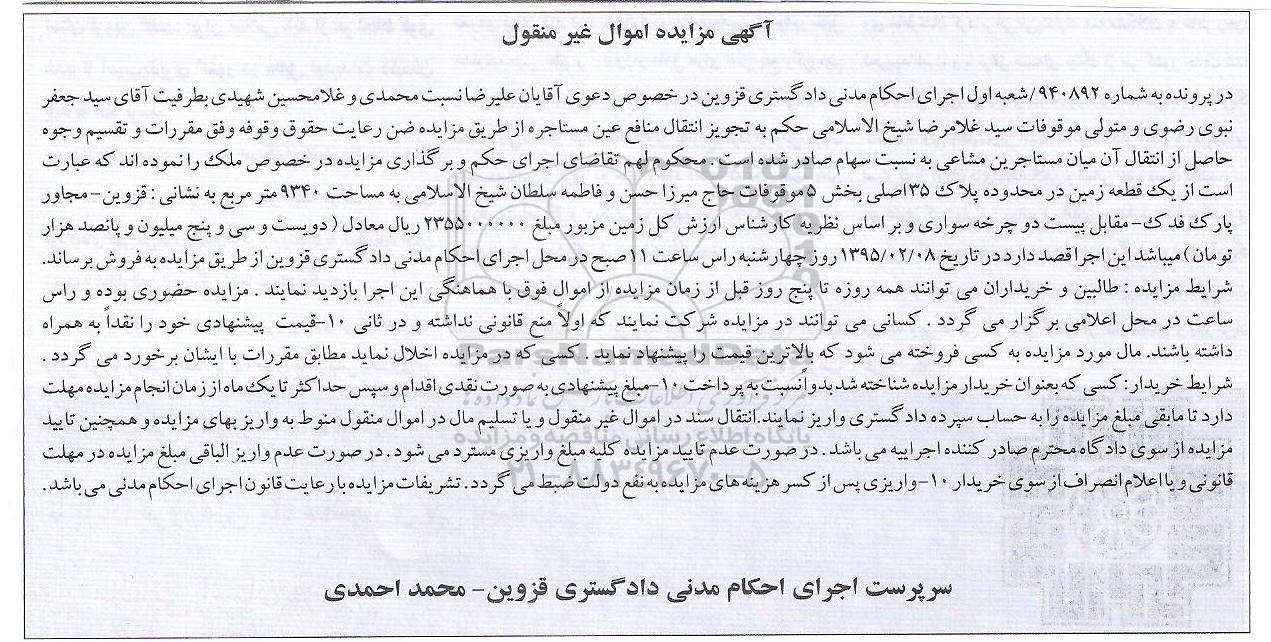 آگهی مزایده اموال غیر منقول
در پرونده به شماره ۹۴۰۸۹۲ /شعبه اول اجرای احکام مدنی دادگستری قزوین در خصوص دعوی آقایان علیرضا نسبت محمدی و غلامحسین شهیدی بطرفیت آقای سید جعفر
نبوی رضوی و متولی موقوفات سید غلامرضا شیخ الاسلامی حکم به تجویز انتقال منافع عین مستاجره از طریق مزایده ضن رعایت حقوق وقوفه وفق مقررات و تقسیم وجوه
حاصل از انتقال آن میان مستاجرین مشاعی به نسبت سهام صادر شده است . محکوم لهم تقاضای اجرای حکم و بر گذاری مزایده در خصوص ملک را نموده اند که عبارت
است از یک قطعه زمین در محدوده پلاک ۳۵ اصلی بخش ۵ موقوفات حاج میرزا حسن و فاطمه سلطان شیخ الاسلامی به مساحت ۹۳۴۰ متر مربع به نشانی : قزوین - مجاور
پارک فدک - مقابل پیست دو چرخه سواری و بر اساس نظریه کارشناس ارزش کل زمین مزبور مبلغ ۲۳۵۵۰۰۰۰۰۰ ریال معادل ( دویست و سی و پنج میلیون و پانصد هزار
تومان ) میباشد این اجرا قصد دارد در تاریخ ۱۳۹۵/۰۲/۰۸ روز چهارشنبه راس ساعت ۱۱ صبح در محل اجرای احکام مدنی دادگستری قزوین از طریق مزایده به فروش برساند.
شرایط مزایده : طالبین و خریداران می توانند همه روزه تا پنج روز قبل از زمان مزایده از اموال فوق با هماهنگی این اجرا بازدید نمایند . مزایده حضوری بوده و راس
ساعت در محل اعلامی برگزار می گردد . کسانی می توانند در مزایده شرکت نمایند که اولاً منع قانونی نداشته و در ثانی ۱۰-قیمت پیشنهادی خود را نقداً به همراه
داشته باشند. مال مورد مزایده به کسی فروخته می شود که بالاترین قیمت را پیشنهاد نماید . کسی که در مزایده اخلال نماید مطابق مقررات با ایشان برخورد می گردد .
شرایط خریدار : کسی که بعنوان خریدار مزایده شناخته شد بدواً نسبت به پرداخت ۱۰-مبلغ پیشنهادی به صورت نقدی اقدام و سپس حداکثر تا یک ماه از زمان انجام مزایده مهلت
دارد تا مابقی مبلغ مزایده را به حساب سپرده دادگستری واریز نمایند.انتقال سند در اموال غیر منقول و یا تسلیم مال در اموال منقول منوط به واریز بهای مزایده و همچنین تایید
مزایده از سوی دادگاه محترم صادر کننده اجراییه می باشد . در صورت عدم تایید مزایده کلیه مبلغ واریزی مسترد می شود . در صورت عدم واریز الباقی مبلغ مزایده در مهلت
قانونی و یا اعلام انصراف از سوی خریدار ۱۰-واریزی پس از کسر هزینه های مزایده به نفع دولت ضبط می گردد . تشریفات مزایده با رعایت قانون اجرای احکام مدنی می باشد .
سرپرست اجرای احکام مدنی دادگستری قزوین - محمد احمدی